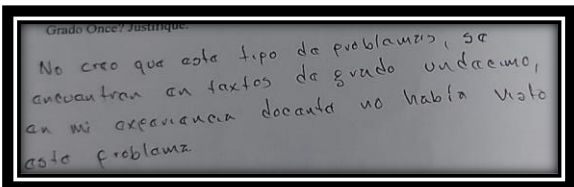 Grado Once? Justifique.
No creo que este tipo de problemas, se
encuentran en textos de grado undecimo,
en mi experiencia docente no había visto
este problema